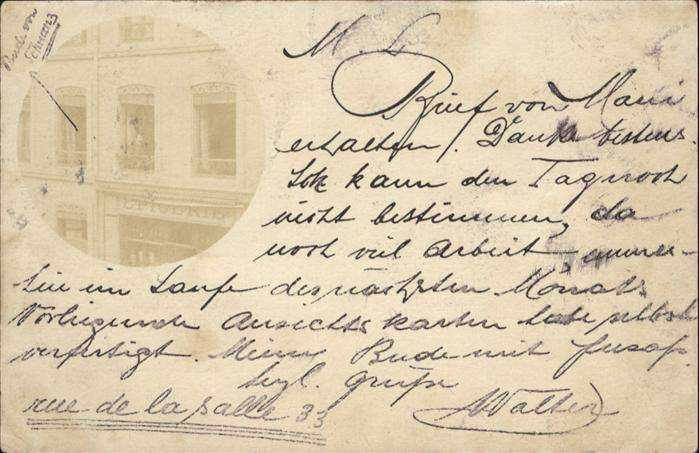 Bude von
M. L.
Brief von Marie
erhalten. Danke bestens
kann den Tag noch
nicht bestimmen, da
noch viel Arbeit
im Laufe des nächsten Monats
Vorliegende Ansichtskarten habe selbst
verfertigt. Meine Bude mit
Grüße
rue de la Salle 33 Walter